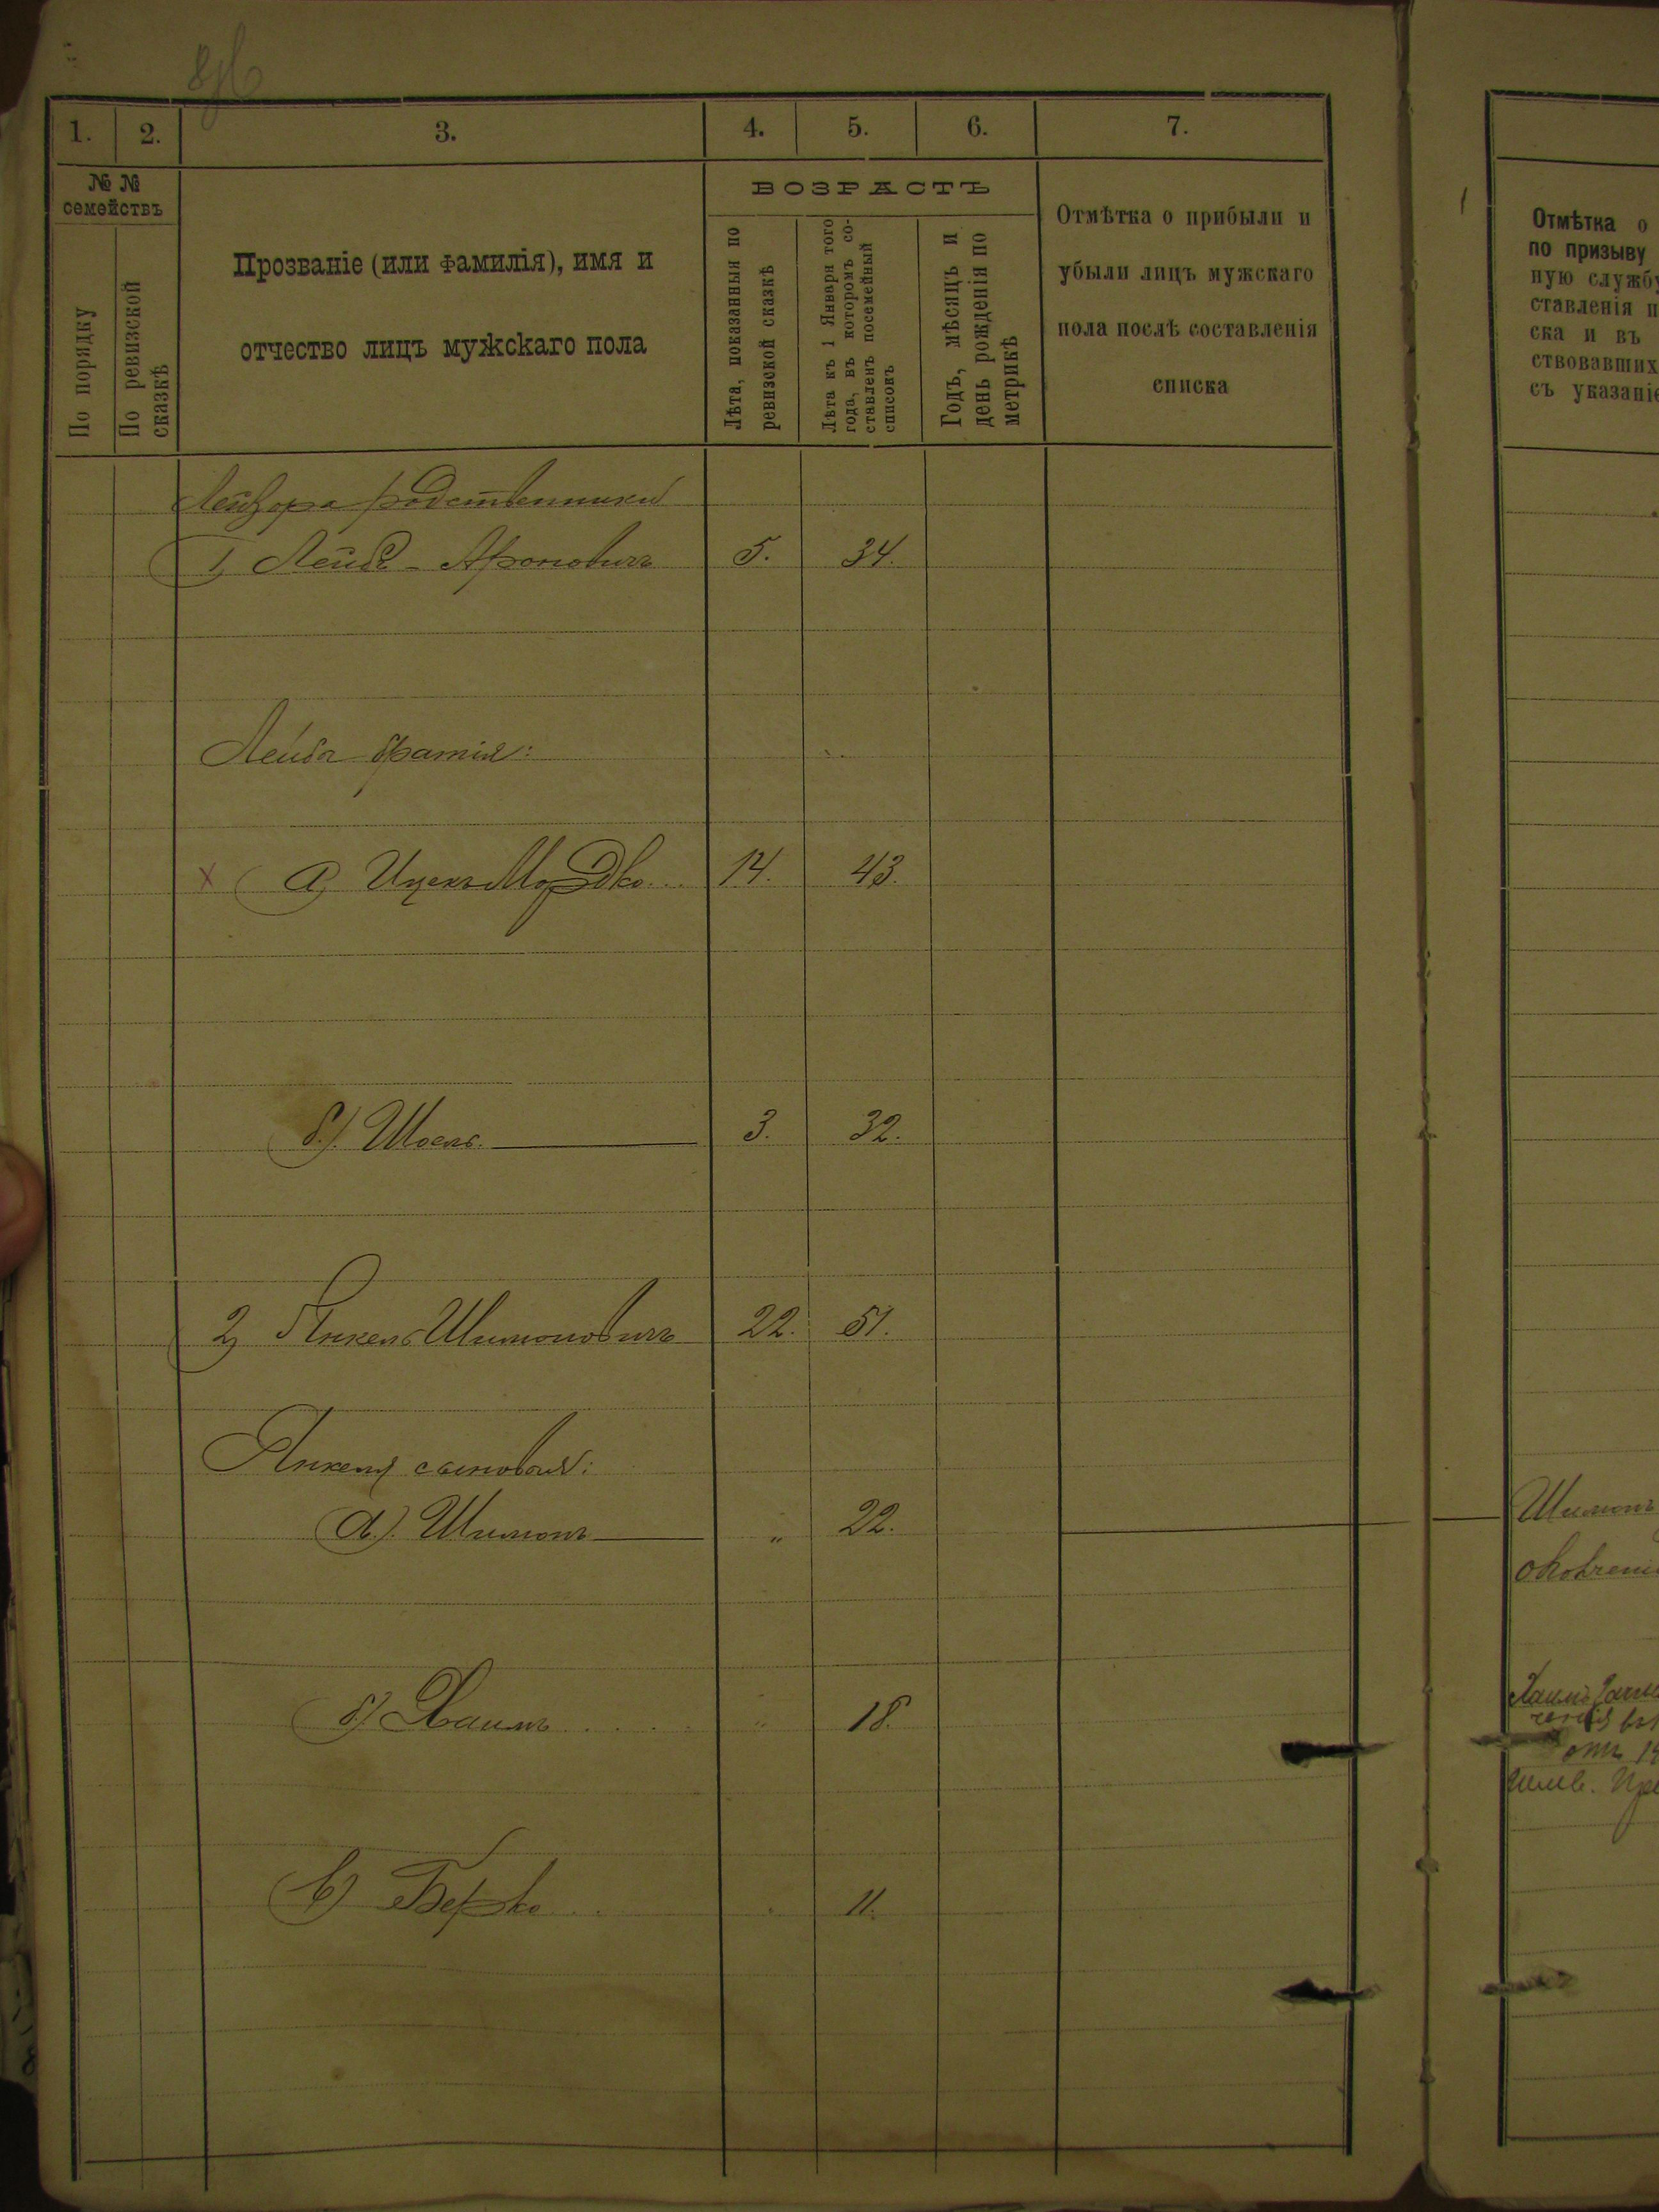 1.
2.
3.
4.
5.
6.
7.
№ №
семействъ
По порядку
По ревизской
сказкѣ
Прозваніе (или фамилія), имя и
отчество лицъ мужскаго пола
ВОЗРАСТЪ
Лѣта, показанныя по
ревизской сказкѣ
Лѣта къ 1 Января того
года, въ которомъ со-
ставленъ посемейный
списокъ
Годъ, мѣсяцъ и
день рожденія по
метрикѣ
Отмѣтка о прибыли и
убыли лицъ мужскаго
пола послѣ составленія
списка
Лейзора родственники
1, Лейба Ароновичъ 5. 34.
Лейба братія:
а, Ицекъ Мордко 14. 43.
б.) Шоель. 3. 32.
2, Янкель Шимоновичъ 22. 51.
Янкеля сыновья:
а.). Шимонъ „ 22.
б.) Хаимъ „ 18.
в) Берко 11.
Отмѣтка о
по призыву
ную службу
ставленія п
ска и въ
ствовавших
съ указаніе
Шимонъ
Хаимъ
отъ